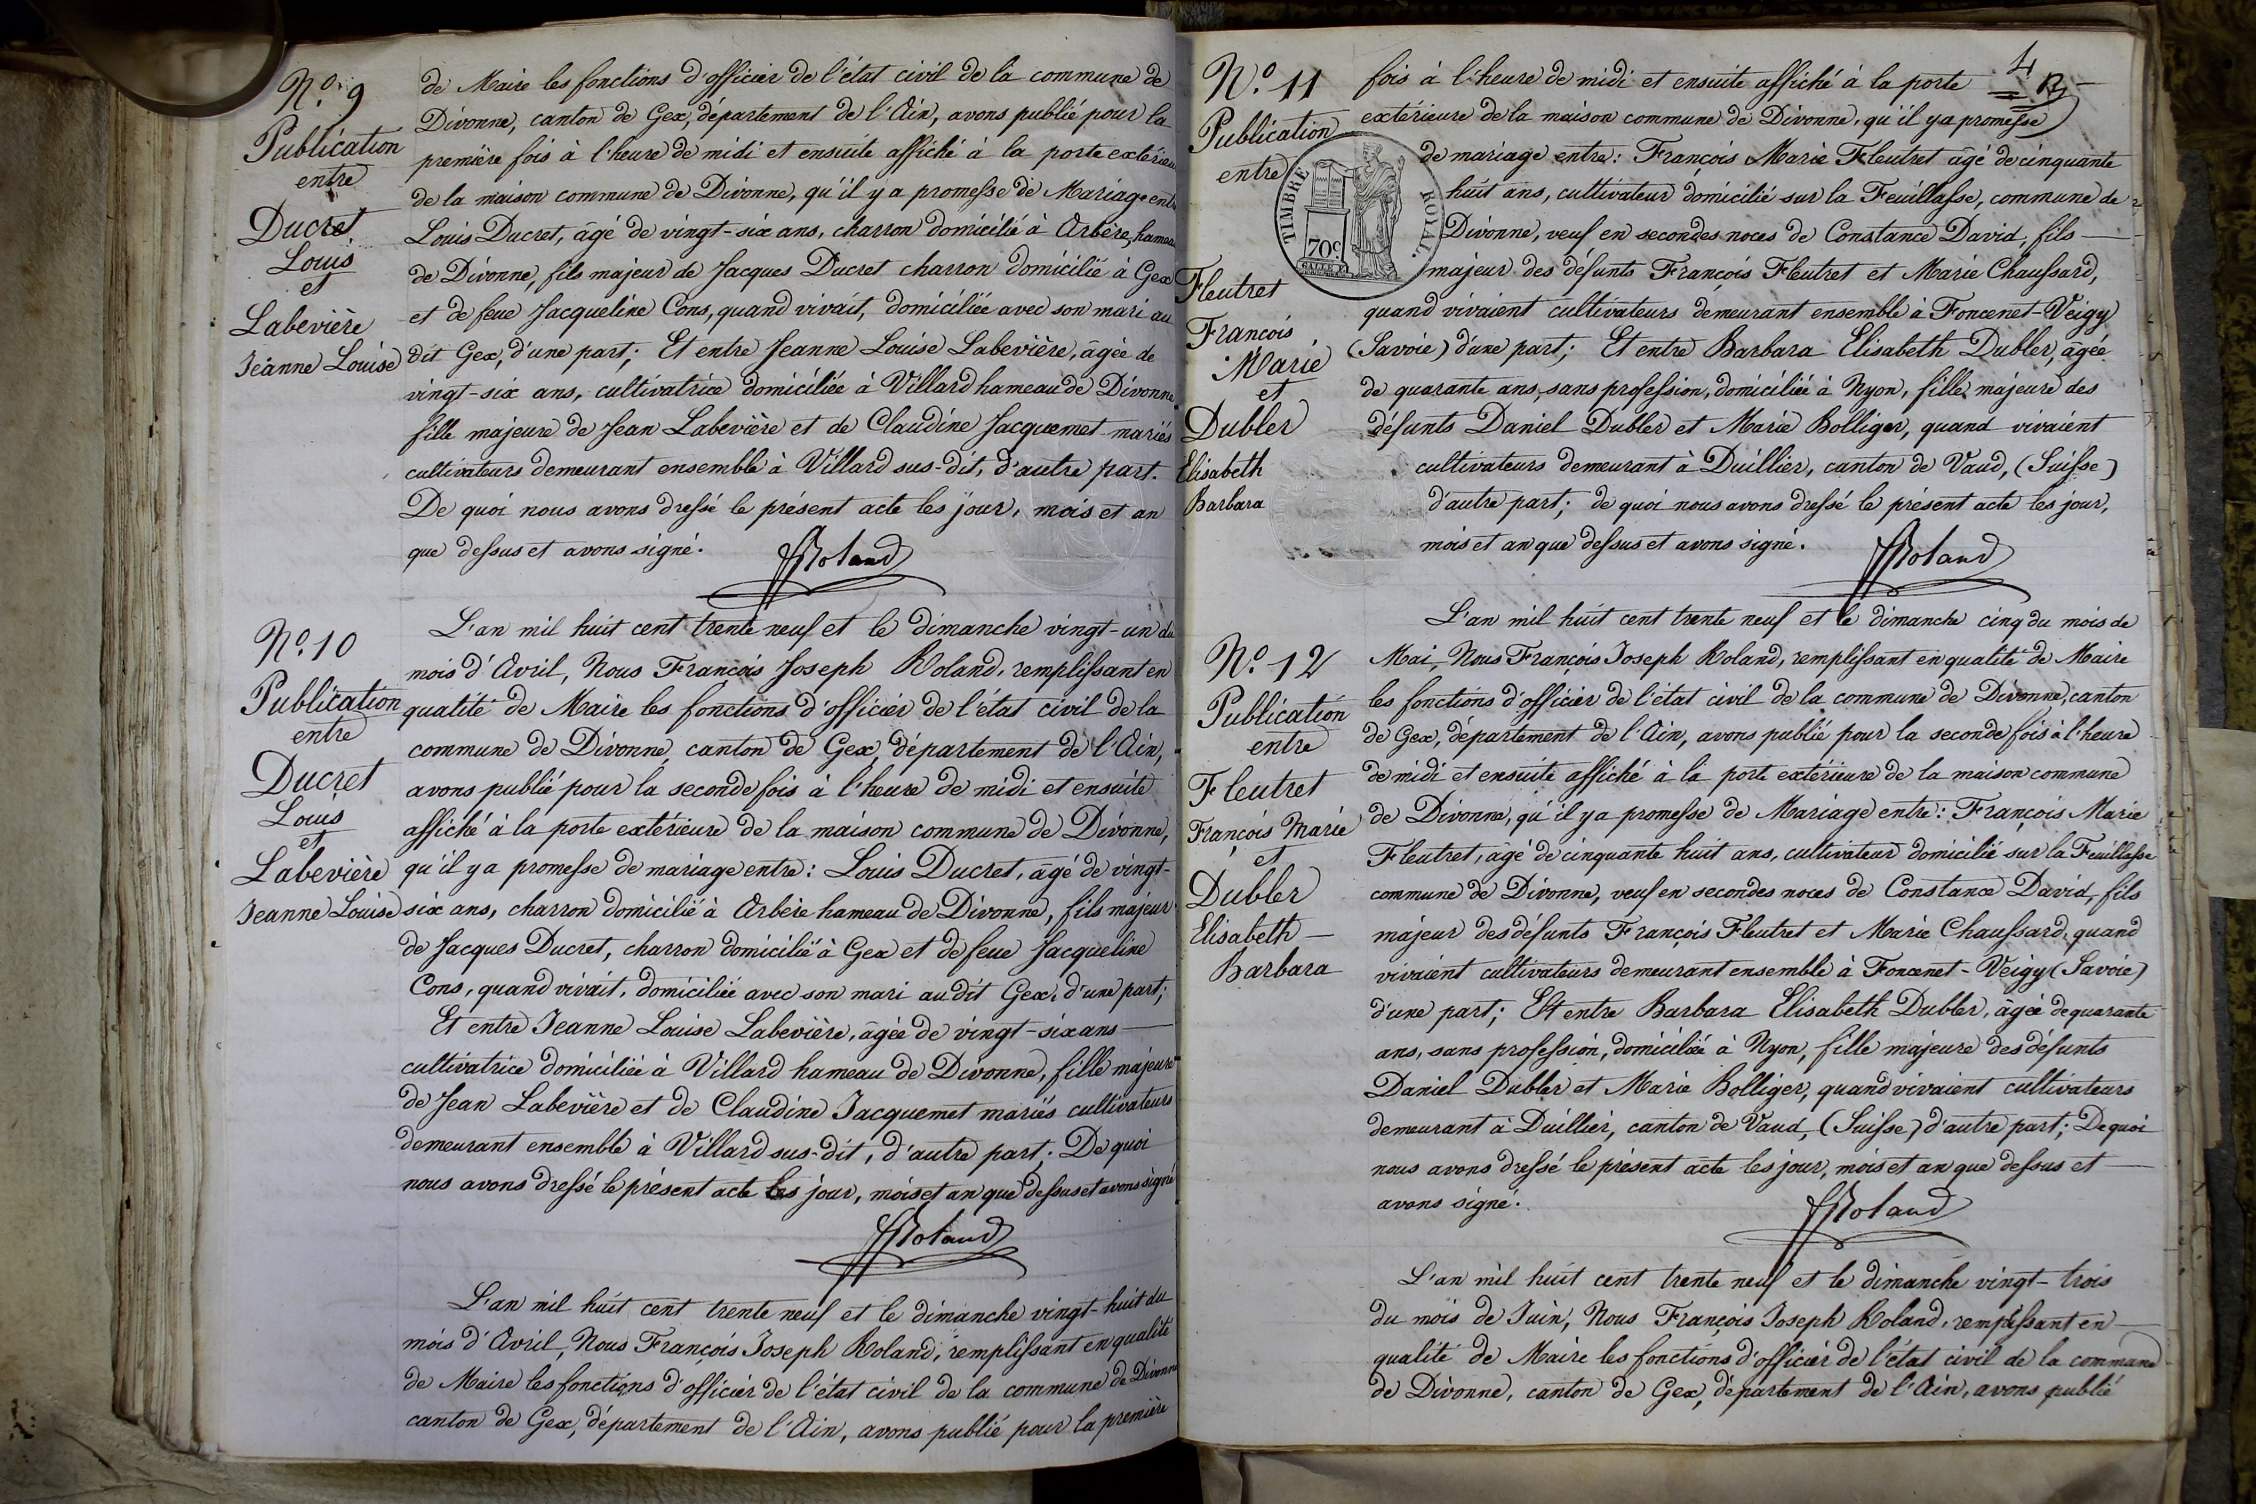 N.o 9
Publication
entre
Ducret
Louis
et
Labevière
Jeanne Louise
de Maire les fonctions d'officier de l'état civil de la commune de
Divonne, canton de Gex, département de l'Ain, avons publié pour la
première fois à l'heure de midi et ensuite affiché à la porte extérieu
de la maison commune de Divonne, qu'il y a promesse de Mariage entr
Louis Ducret, âgé de vingt-six ans, charron domicilié à Arbère, hameau
de Divonne, fils majeur de Jacques Ducret charron domicilié à Gex
et de feue Jacqueline Cons, quand vivait, domiciliée avec son mari au
dit Gex, d'une part; Et entre Jeanne Louise Labevière, âgée de
vingt-six ans, cultivatrice domiciliée à Villard hameau de Divonne
fille majeure de Jean Labevière et de Claudine Jacquemet mariés
cultivateurs demeurant ensemble à Villard sus-dit, d'autre part.
De quoi nous avons dressé le présent acte les jour, mois et an
que dessus et avons signé.
Roland
N.o 10
Publication
entre
Ducret
Louis
et
Labevière
Jeanne Louise
L'an mil huit cent trente neuf et le dimanche vingt-un du
mois d'Avril, Nous François Joseph Roland, remplissant en
qualité de Maire les fonctions d'officier de l'état civil de la
commune de Divonne, canton de Gex, département de l'Ain,
avons publié pour la seconde fois à l'heure de midi et ensuite
affiché à la porte extérieure de la maison commune de Divonne,
qu'il y a promesse de mariage entre: Louis Ducret, âgé de vingt-
six ans, charron domicilié à Arbère hameau de Divonne, fils majeur
de Jacques Ducret, charron domicilié à Gex et de feue Jacqueline
Cons, quand vivait, domiciliée avec son mari audit Gex, d'une part;
Et entre Jeanne Louise Labevière, âgée de vingt-six ans
cultivatrice domiciliée à Villard hameau de Divonne, fille majeure
de Jean Labevière et de Claudine Jacquemet mariés cultivateurs
demeurant ensemble à Villard sus-dit, d'autre part; De quoi
nous avons dressé le présent acte les jour, mois et an que dessus et avons signé
Roland
L'an mil huit cent trente neuf et le dimanche vingt-huit du
mois d'Avril, Nous François Joseph Roland, remplissant en qualité
de Maire les fonctions d'officier de l'état civil de la commune de Divonne
canton de Gex, département de l'Ain, avons publié pour la première
4
N.o 11
Publication
entre
Fleutret
François
Marie
et
Dubler
Elisabeth
Barbara
TIMBRE ROYAL.
70c
fois à l'heure de midi et ensuite affiché à la porte
extérieure de la maison commune de Divonne, qu'il y a promesse
de mariage entre: François Marie Fleutret âgé de cinquante
huit ans, cultivateur domicilié sur la Feuillasse, commune de
Divonne, veuf en secondes noces de Constance David, fils
majeur des défunts François Fleutret et Marie Chaussard,
quand vivaient cultivateurs demeurant ensemble à Foncenet-Veigy
(Savoie) d'une part; Et entre Barbara Elisabeth Dubler, âgée
de quarante ans, sans profession, domiciliée à Nyon, fille majeure des
défunts Daniel Dubler et Marie Bolliger, quand vivaient
cultivateurs demeurant à Duillier, canton de Vaud, (Suisse)
d'autre part; de quoi nous avons dressé le présent acte les jour,
mois et an que dessus et avons signé.
Roland
N.o 12
Publication
entre
Fleutret
François Marie
et
Dubler
Elisabeth
Barbara
L'an mil huit cent trente neuf et le dimanche cinq du mois de
Mai, Nous François Joseph Roland, remplissant en qualité de Maire
les fonctions d'officier de l'état civil de la commune de Divonne, canton
de Gex, département de l'Ain, avons publié pour la seconde fois à l'heure
de midi et ensuite affiché à la porte extérieure de la maison commune
de Divonne, qu'il y a promesse de Mariage entre: François Marie
Fleutret, âgé de cinquante huit ans, cultivateur domicilié sur la Feuillasse
commune de Divonne, veuf en secondes noces de Constance David, fils
majeur des défunts François Fleutret et Marie Chaussard, quand
vivaient cultivateurs demeurant ensemble à Foncenet-Veigy (Savoie)
d'une part; Et entre Barbara Elisabeth Dubler, âgée de quarante
ans, sans profession, domiciliée à Nyon, fille majeure des défunts
Daniel Dubler et Marie Bolliger, quand vivaient cultivateurs
demeurant à Duillier, canton de Vaud, (Suisse) d'autre part; De quoi
nous avons dressé le présent acte les jour, mois et an que dessus et
avons signé.
Roland
L'an mil huit cent trente neuf et le dimanche vingt-trois
du mois de Juin, Nous François Joseph Roland, remplissant en
qualité de Maire les fonctions d'officier de l'état civil de la commune
de Divonne, canton de Gex, département de l'Ain, avons publié